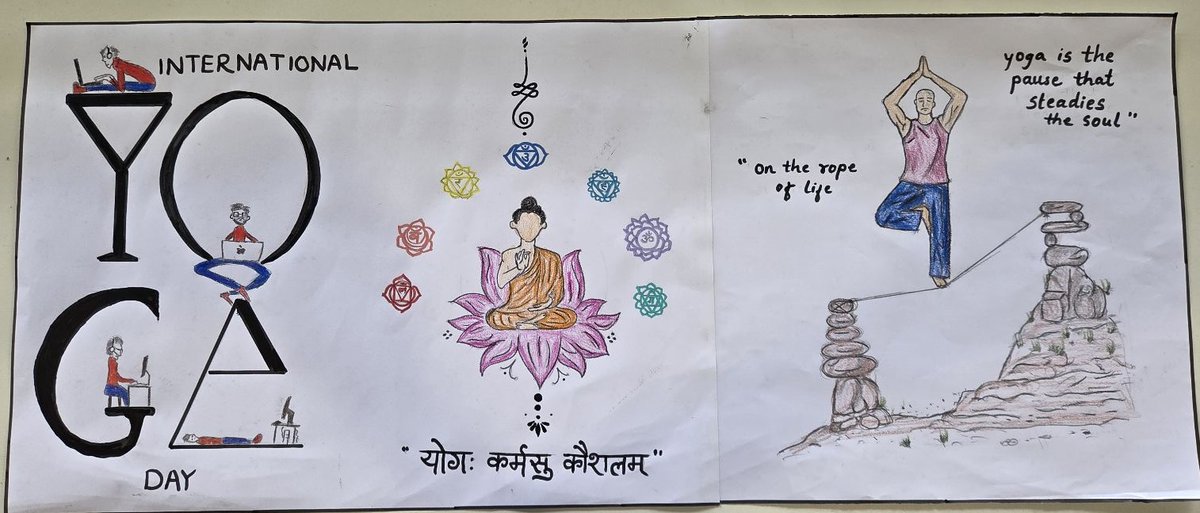 INTERNATIONAL
YO
GA
DAY
"योगः कर्मसु कौशलम्"
"on the rope
of life
yoga is the
pause that
steadies
the soul"